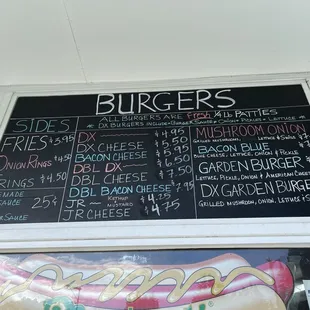 BURGERS
ALL BURGERS ARE Fresh ¼ LB PATTIES
DX BURGERS INCLUDE
ONION PICKLE LETTUCE
SIDES
FRIES $3.95
ONION RINGS $4.50
RINGS $4.50
MADE
SAUCE 25¢
SAUCE
DX $4.95
DX CHEESE $5.50
BACON CHEESE $5.95
DBL DX $6.50
DBL CHEESE $7.50
DBL BACON CHEESE $7.95
JR KETCHUP & MUSTARD $4.25
JR CHEESE $4.75
MUSHROOM ONION
GRILLED MUSHROOM, ONION, LETTUCE & SWISS
BACON BLUE
BLUE CHEESE, LETTUCE, ONION & PICKLE
GARDEN BURGER
LETTUCE, PICKLE, ONION & AMERICAN CHEESE
DX GARDEN BURGER
GRILLED MUSHROOM, ONION, LETTUCE